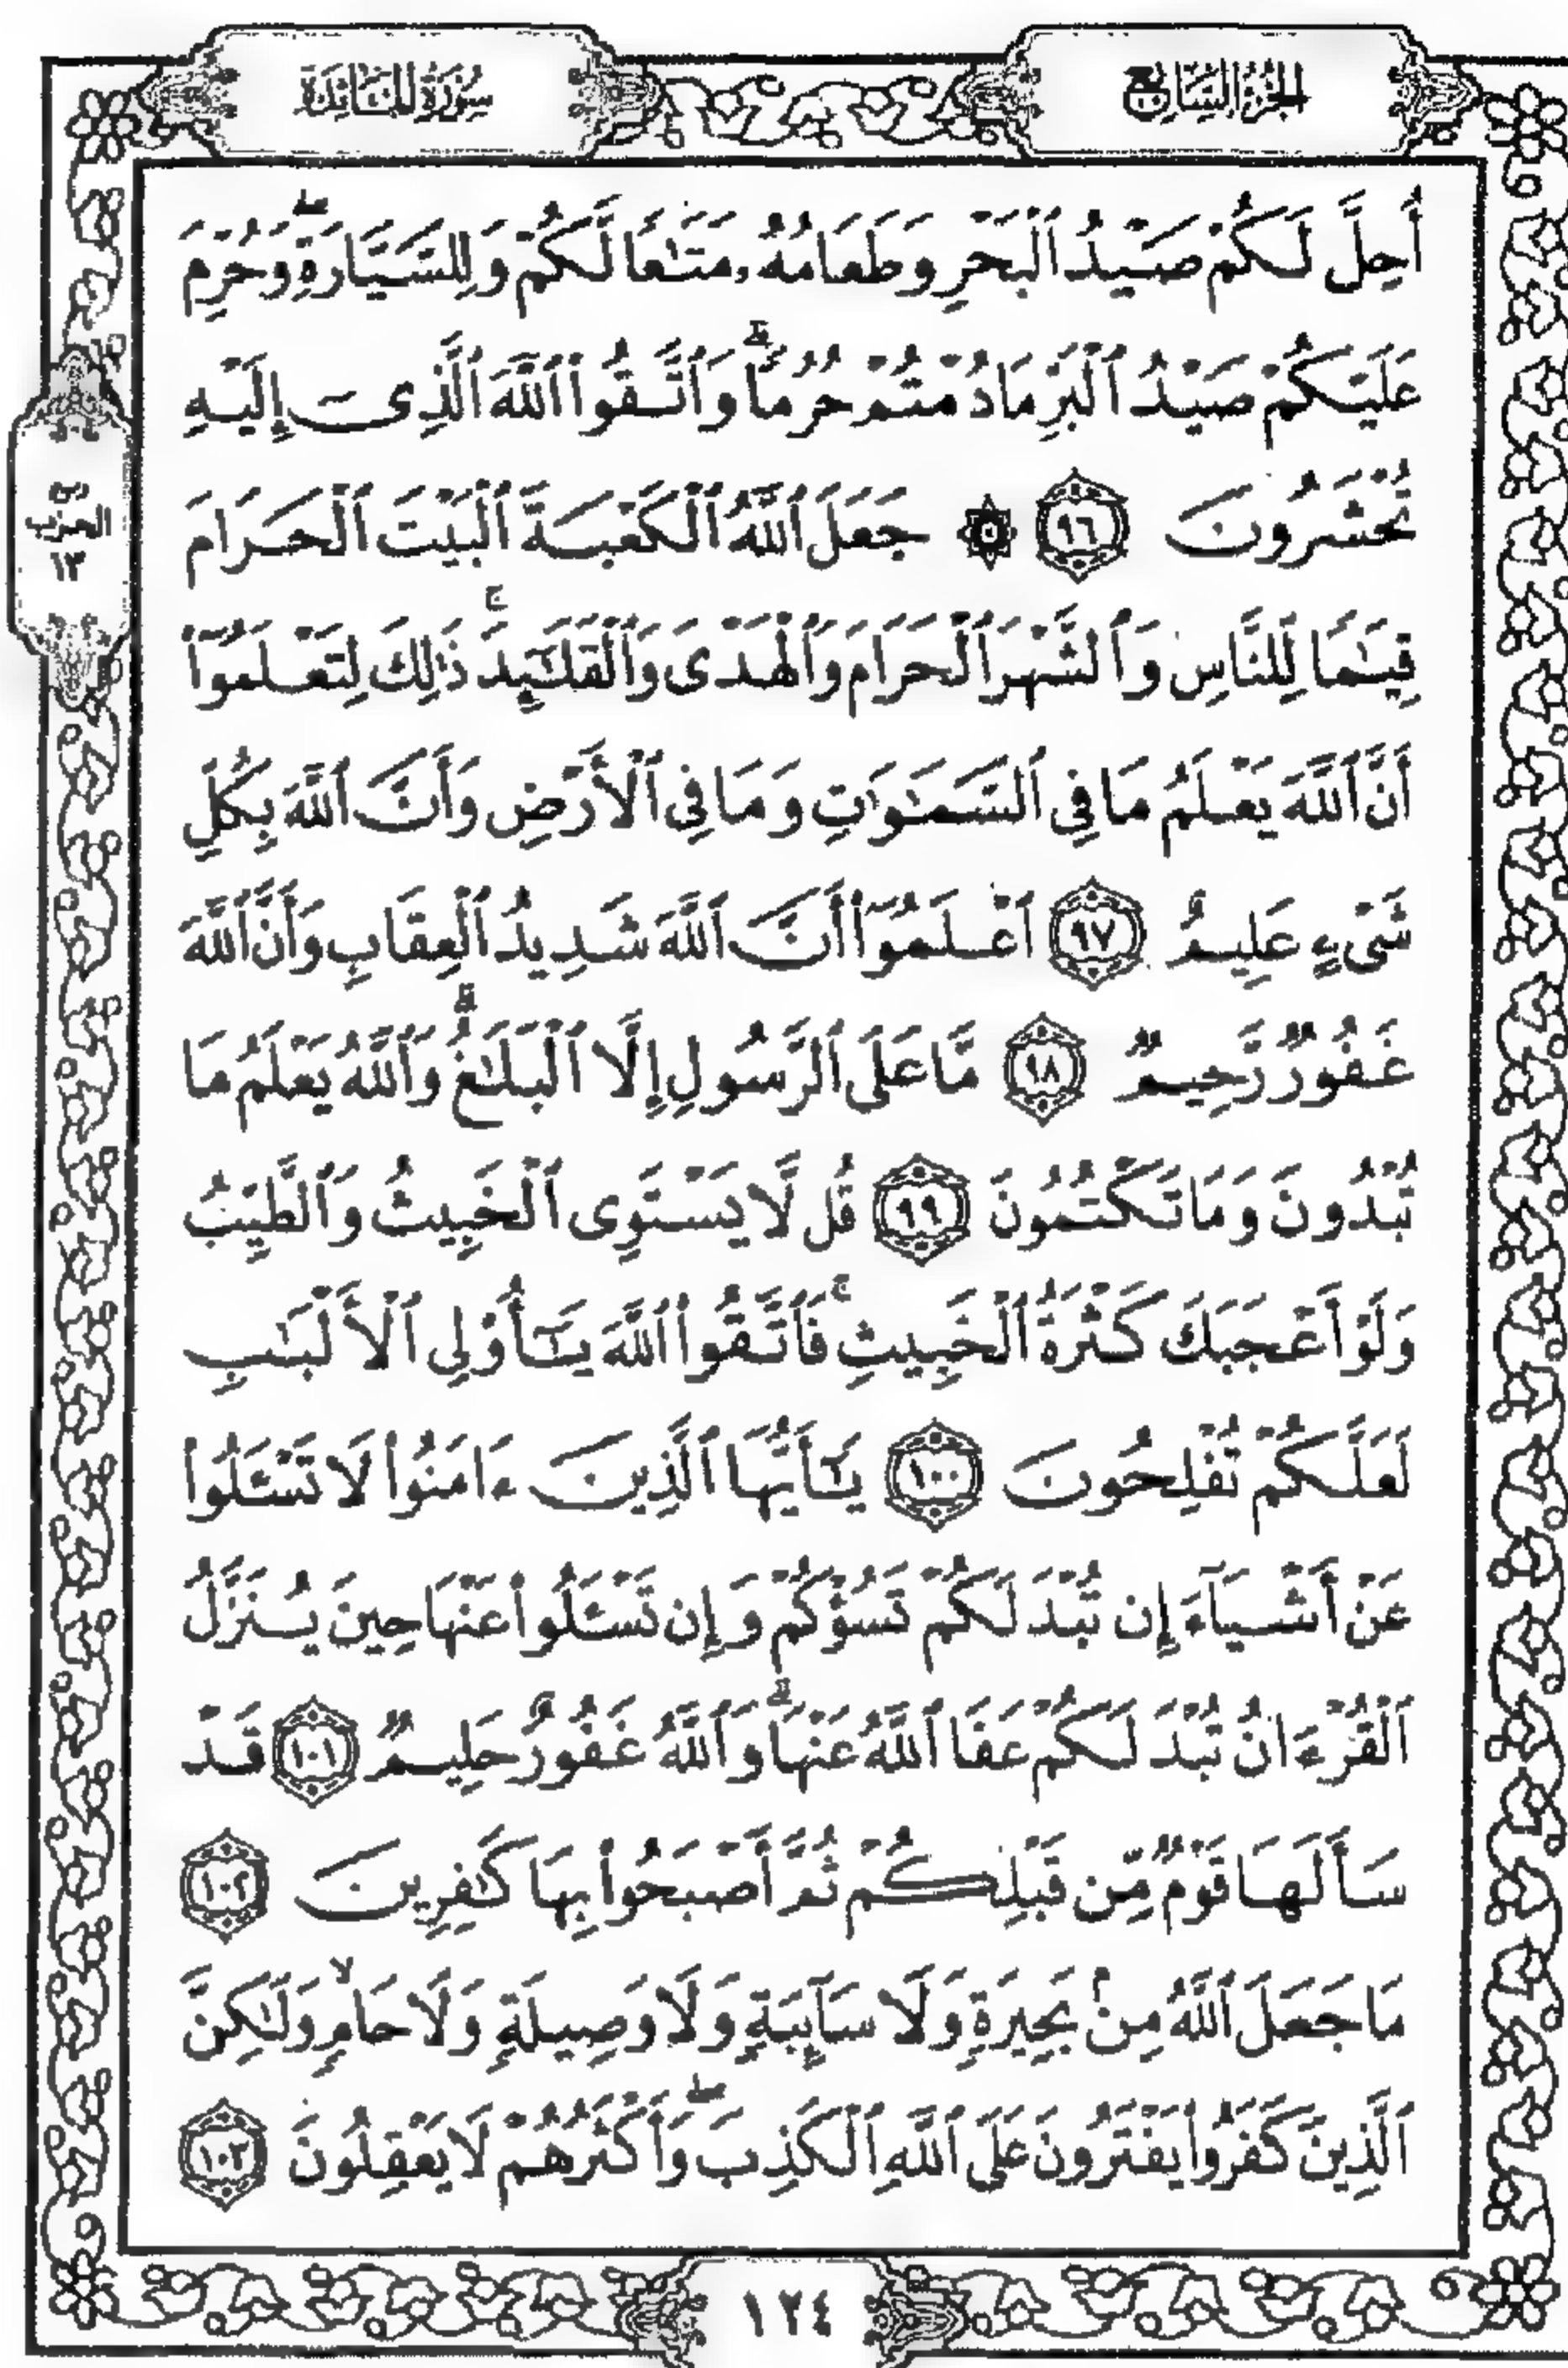 سُورَةُ المَائِدَة
الجُزْءُ السَّابِع
أُحِلَّ لَكُمْ صَيْدُ ٱلْبَحْرِ وَطَعَامُهُۥ مَتَٰعًا لَّكُمْ وَلِلسَّيَّارَةِۖ وَحُرِّمَ
عَلَيْكُمْ صَيْدُ ٱلْبَرِّ مَا دُمْتُمْ حُرُمًاۗ وَٱتَّقُوا۟ ٱللَّهَ ٱلَّذِىٓ إِلَيْهِ
تُحْشَرُونَ ٩٦ ۞ جَعَلَ ٱللَّهُ ٱلْكَعْبَةَ ٱلْبَيْتَ ٱلْحَرَامَ
ربع
الحزب
١٣
قِيَٰمًا لِّلنَّاسِ وَٱلشَّهْرَ ٱلْحَرَامَ وَٱلْهَدْىَ وَٱلْقَلَٰٓئِدَۚ ذَٰلِكَ لِتَعْلَمُوٓا۟
أَنَّ ٱللَّهَ يَعْلَمُ مَا فِى ٱلسَّمَٰوَٰتِ وَمَا فِى ٱلْأَرْضِ وَأَنَّ ٱللَّهَ بِكُلِّ
شَىْءٍ عَلِيمٌ ٩٧ ٱعْلَمُوٓا۟ أَنَّ ٱللَّهَ شَدِيدُ ٱلْعِقَابِ وَأَنَّ ٱللَّهَ
غَفُورٌ رَّحِيمٌ ٩٨ مَّا عَلَى ٱلرَّسُولِ إِلَّا ٱلْبَلَٰغُۗ وَٱللَّهُ يَعْلَمُ مَا
تُبْدُونَ وَمَا تَكْتُمُونَ ٩٩ قُل لَّا يَسْتَوِى ٱلْخَبِيثُ وَٱلطَّيِّبُ
وَلَوْ أَعْجَبَكَ كَثْرَةُ ٱلْخَبِيثِۚ فَٱتَّقُوا۟ ٱللَّهَ يَٰٓأُو۟لِى ٱلْأَلْبَٰبِ
لَعَلَّكُمْ تُفْلِحُونَ ١٠٠ يَٰٓأَيُّهَا ٱلَّذِينَ ءَامَنُوا۟ لَا تَسْـَٔلُوا۟
عَنْ أَشْيَآءَ إِن تُبْدَ لَكُمْ تَسُؤْكُمْ وَإِن تَسْـَٔلُوا۟ عَنْهَا حِينَ يُنَزَّلُ
ٱلْقُرْءَانُ تُبْدَ لَكُمْ عَفَا ٱللَّهُ عَنْهَاۗ وَٱللَّهُ غَفُورٌ حَلِيمٌ ١٠١ قَدْ
سَأَلَهَا قَوْمٌ مِّن قَبْلِكُمْ ثُمَّ أَصْبَحُوا۟ بِهَا كَٰفِرِينَ ١٠٢
مَا جَعَلَ ٱللَّهُ مِنۢ بَحِيرَةٍ وَلَا سَآئِبَةٍ وَلَا وَصِيلَةٍ وَلَا حَامٍۙ وَلَٰكِنَّ
ٱلَّذِينَ كَفَرُوا۟ يَفْتَرُونَ عَلَى ٱللَّهِ ٱلْكَذِبَۖ وَأَكْثَرُهُمْ لَا يَعْقِلُونَ ١٠٣
١٢٤